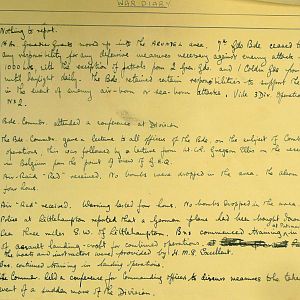 WAR DIARY
Nothing to report.
Grenadier Guards moved up into the area. 7th Gds Bde ceased to
any responsibility for any defensive measures necessary against enemy attack
1000 hrs, with the exception of patrols from 2 Gren Gds. and 1 Coldm Gds from
until daylight daily. The Bde retained certain responsibilities to support the
in the event of enemy air-born or sea-born attacks. Vide 3 Div Operation
No 2.
Bde Commdr attended a conference at Division.
The Bde Commdr. gave a lecture to all officers of the Bde, on the subject of Combined
operations, this was followed by a lecture from Lt. Col. Grayson Ellis on the
in Belgium from the point of view of G.H.Q.
Air-Raid "Red" received. No bombs were dropped in the area. The alarm
four hours.
Air "Red" received. Warning lasted four hours. No bombs dropped in the area.
Police at Littlehampton reported that a German plane had been brought down
sea three miles S.W. of Littlehampton. Bns commenced training
of assault landing-craft for combined operations at
the boats and instructors were provided by H.M.S Excellent.
Bns continued training in embussing operations.
Commdr. held a conference for Commanding officers to discuss measures to be taken
event of a sudden move of the Division